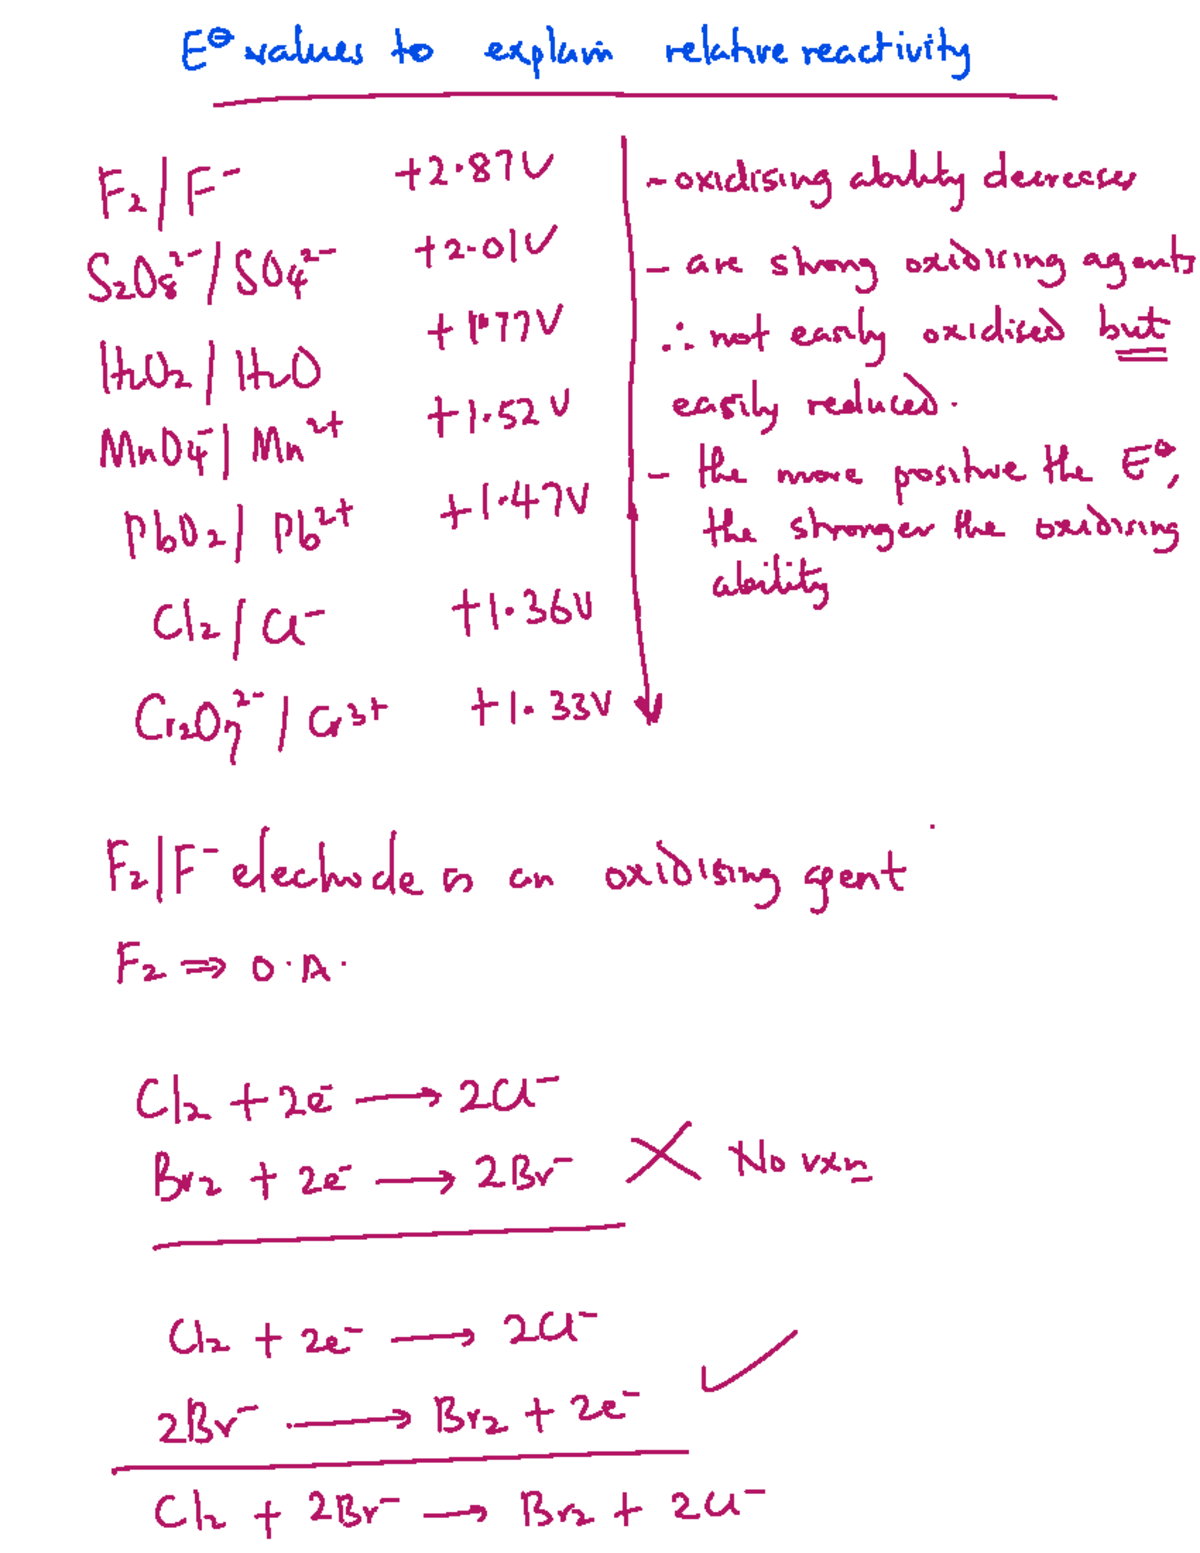 E⦵ values to explain relative reactivity
F₂/F⁻ +2.87V
S₂O₈²⁻/SO₄²⁻ +2.01V
H₂O₂/H₂O +1.77V
MnO₄⁻/Mn²⁺ +1.52V
PbO₂/Pb²⁺ +1.47V
Cl₂/Cl⁻ +1.36V
Cr₂O₇²⁻/Cr³⁺ +1.33V
- oxidising ability decreases
- are strong oxidising agents
∴ not easily oxidised but
easily reduced.
- the more positive the E⦵,
the stronger the oxidising
ability
F₂/F⁻ electrode is an oxidising agent
F₂ ⇒ O.A.
Cl₂ + 2e⁻ → 2Cl⁻
Br₂ + 2e⁻ → 2Br⁻ ✗ No rxn
Cl₂ + 2e⁻ → 2Cl⁻
2Br⁻ → Br₂ + 2e⁻ ✓
Cl₂ + 2Br⁻ → Br₂ + 2Cl⁻